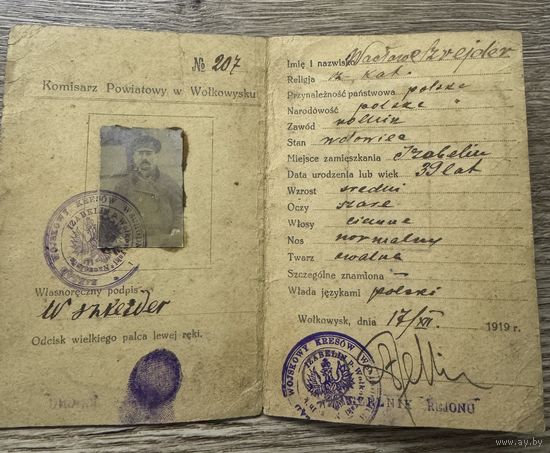 № 207
Komisarz Powiatowy w Wołkowysku
Własnoręczny podpis
W Szkejder
Odcisk wielkiego palca lewej ręki.
Imię i nazwisko Wacław Szrejder
Religja rz. kat.
Przynależność państwowa polska
Narodowość polska
Zawód rolnik
Stan wdowiec
Miejsce zamięszkania Izabelin
Data urodzenia lub wiek 39 lat
Wzrost średni
Oczy szare
Włosy ciemne
Nos normalny
Twarz owalna
Szczególne znamiona —
Włada językami polski
Wołkowysk, dnia 17/XII. 1919 r.
WOJSKOWY KRESÓW
IZABELIN
WOJSKOWY KRESÓW
IZABELIN
REJONU
www.ay.by